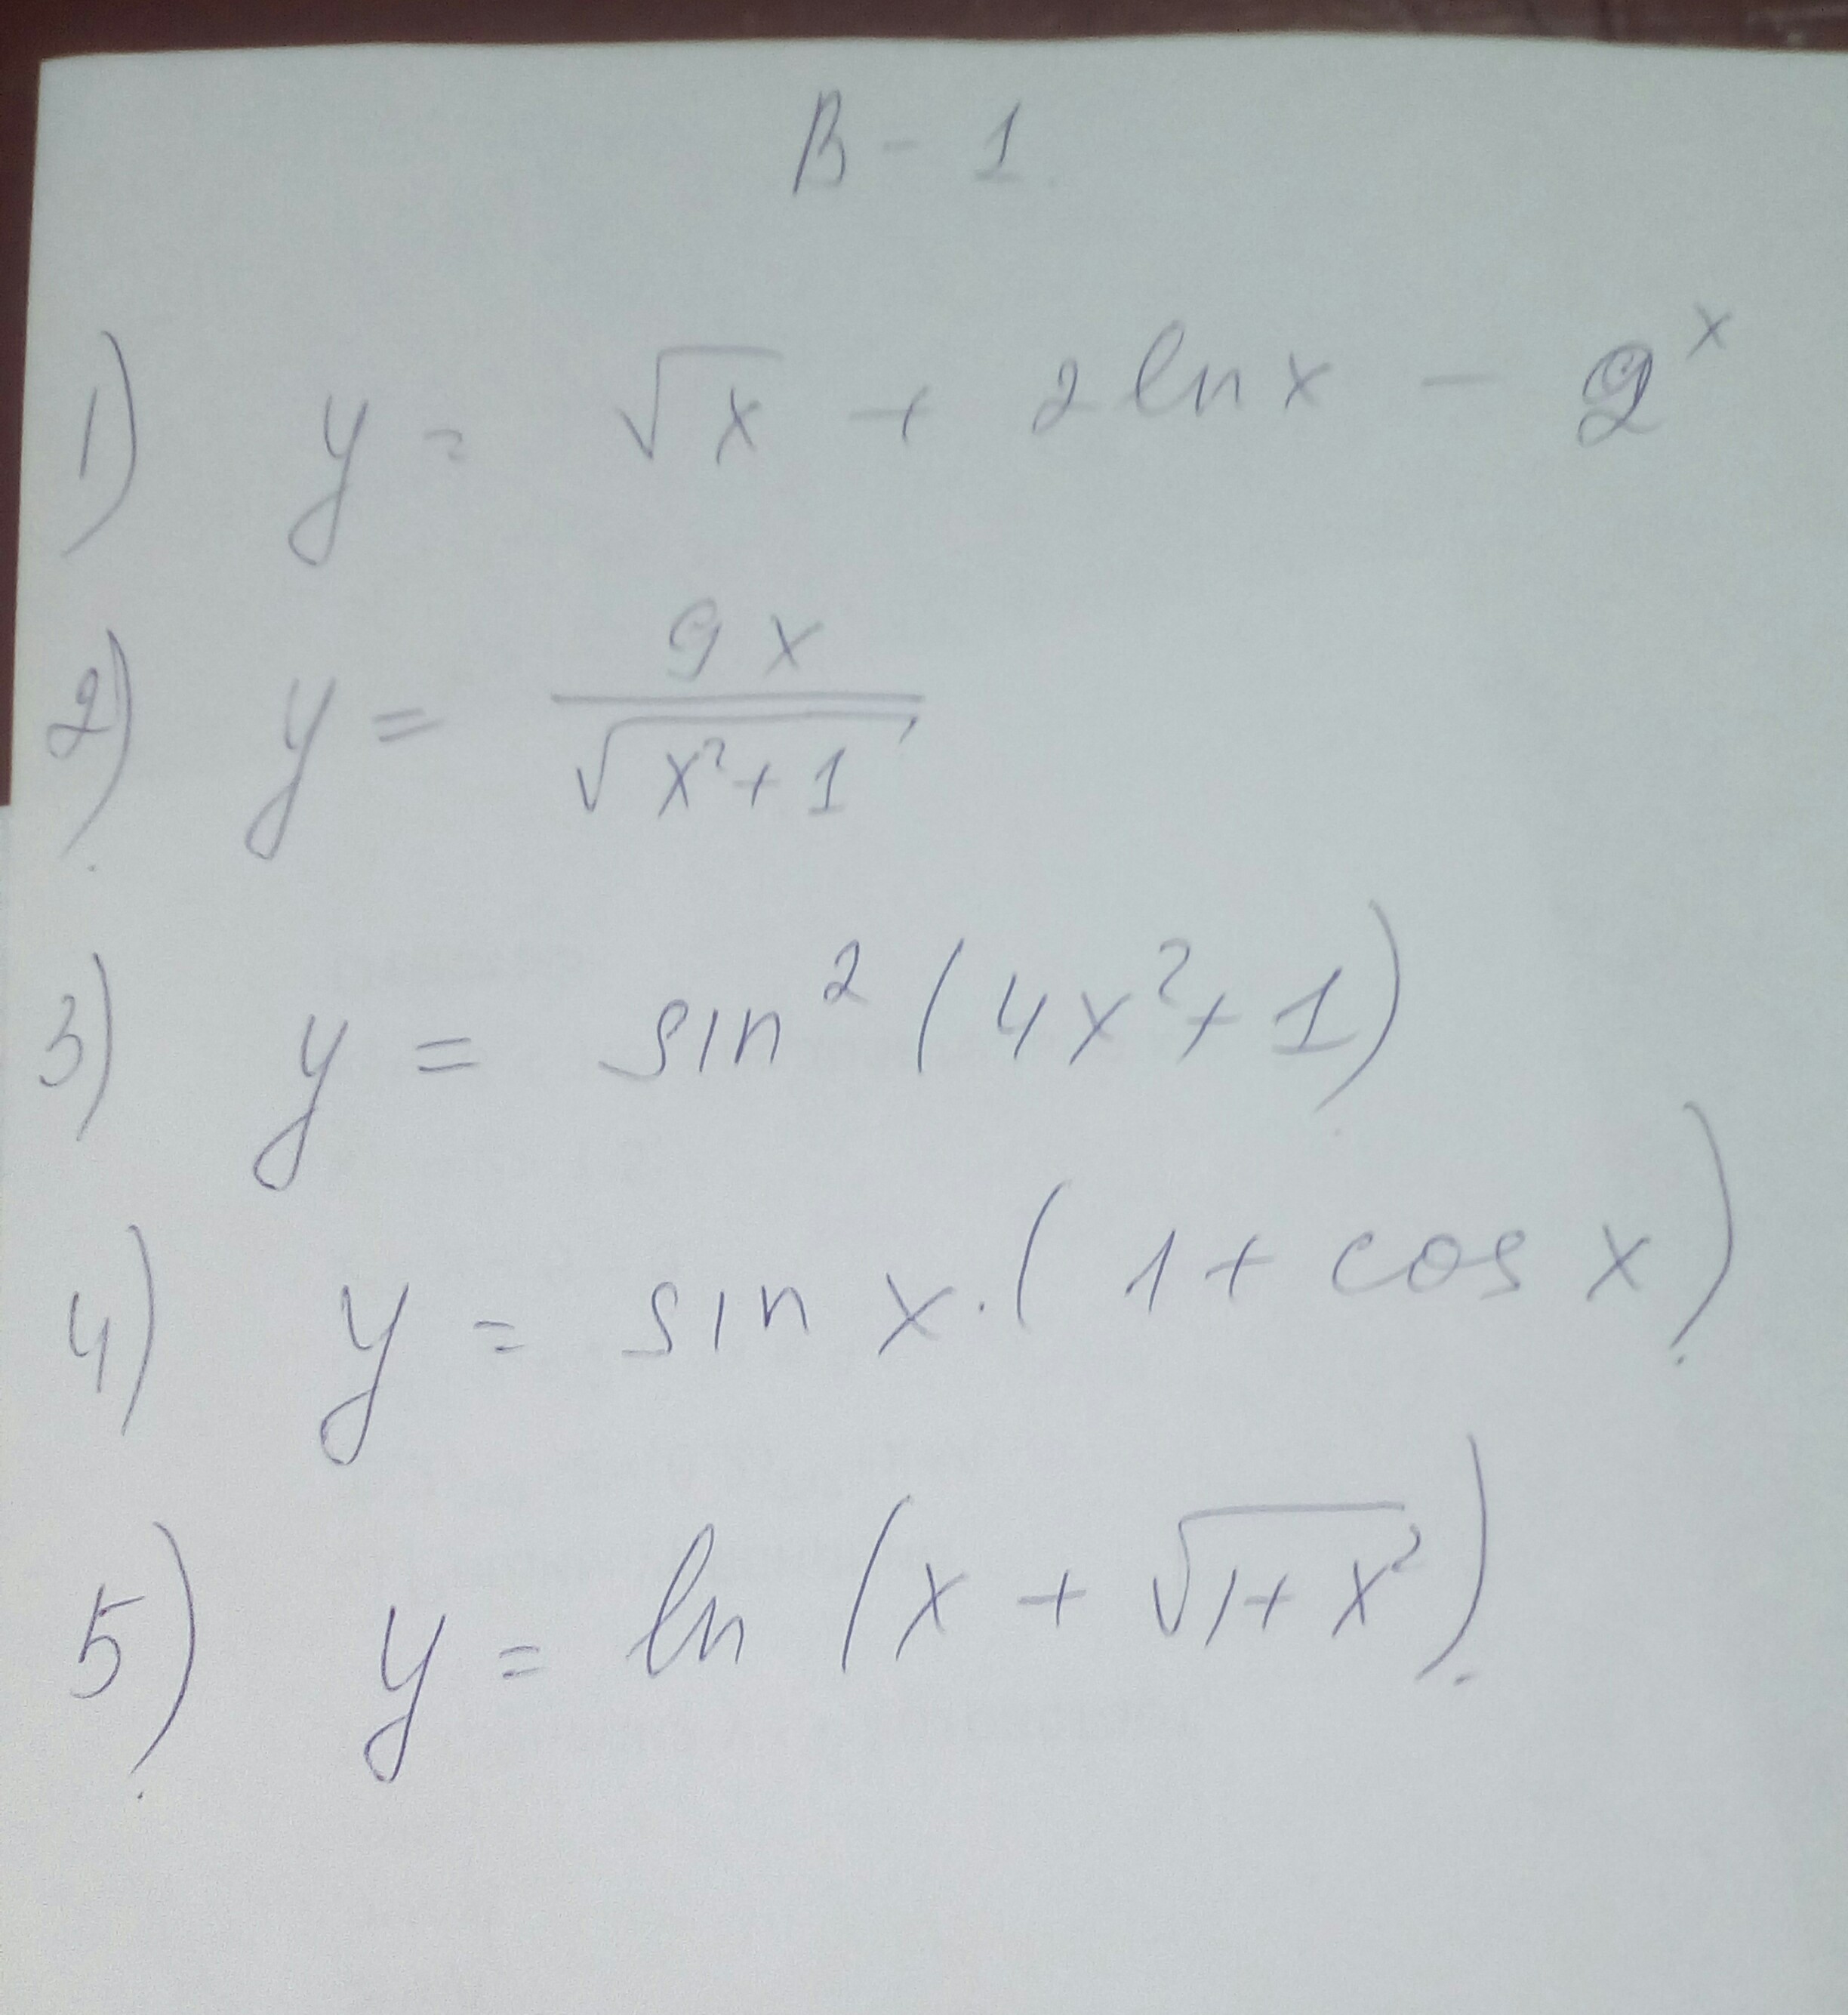 В - 1.
1) y = √x + 2 ln x - 2^x
2) y = 9x / √(x²+1)
3) y = sin² (4x²+1)
4) y = sin x · (1 + cos x).
5) y = ln (x + √(1+x²)).